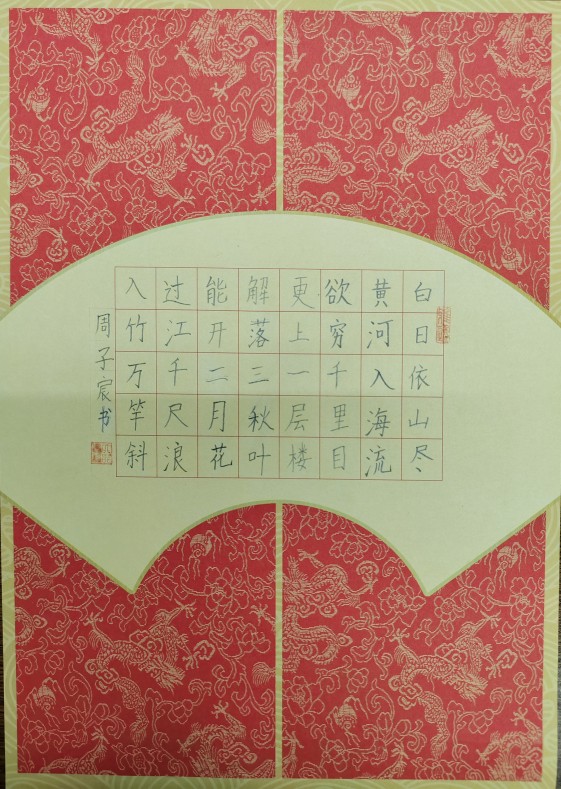 白日依山尽
黄河入海流
欲穷千里目
更上一层楼
解落三秋叶
能开二月花
过江千尺浪
入竹万竿斜
周子宸书